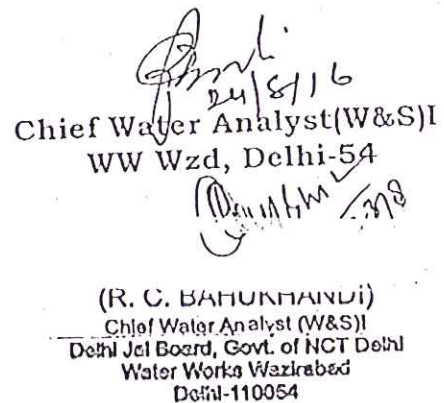 24/8/16
Chief Water Analyst(W&S)I
WW Wzd, Delhi-54
(R. C. BAHUKHANDI)
Chief Water Analyst (W&S)I
Delhi Jal Board, Govt. of NCT Delhi
Water Works Wazirabad
Delhi-110054